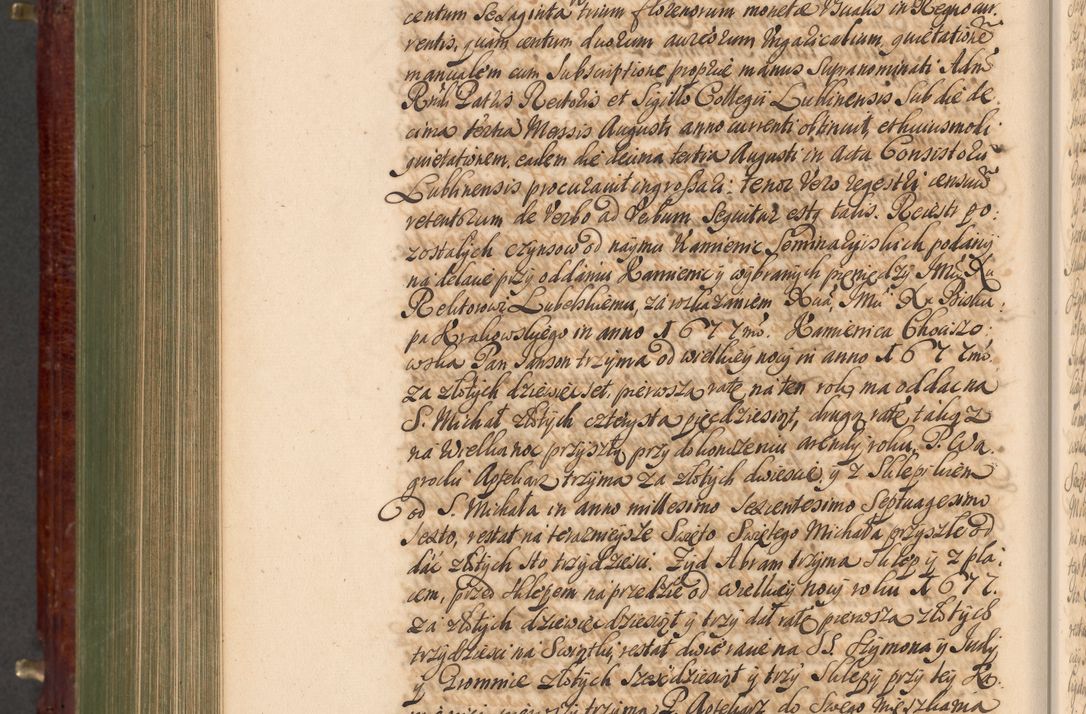 centum Sexaginta trium florenorum monetæ Usualis in Regno cur
rentis, quàm centum duorum aureorum Ungaricalium, quietationē
manualem cum Subscriptione propriæ manus Supranominati Adm̃
Rn̄di Patris Rectoris et Sigillo Collegii Lublinensis Sub die de
cima tertia Mensis Augusti anno currenti obtinuit, et huiusmodi
quietationem, eadem die decima tertia Augusti in Acta Consistorii
Lublinensis procuravit ingrossari: tenor Vero regestri censuū
retentorum de Verbo ad Verbum Sequitur estq talis. Reiestr po:
zostałych czynszow od naymu Kamienic Seminaryiskich podany
na delatę przy oddaniu Kamienic y wybranych pieniędzy JMci Xu
Rektorowi Lubelskiemu, za rozkazaniem JMci X. Bisku:
pa Krakowskiego in anno 1677mo. Kamienica
Pan Janson trzyma od wielkiey nocy in anno 1677mo.
Za złotych dziewięćset, pierwszą ratę na ten rok ma oddac na
S. Michał złotych czterysta pięcdziesiąt, drugą ratę takąz
na Wielkanoc przyszłą przy dokonczeniu arendy roku, P.
Aptekarz trzyma za złotych dwiescie, y z Sklepikiem
od S. Michała in anno millesimo Sexcentesimo Septuagesimo
Sexto, restat na teraznieysze Swięto Swiętego Michała przyszłe od
dac złotych sto trzydziesci. Zyd Abram trzyma Sklep y z pla
cem, przed sklepem naprzedzie od wielkiey nocy roku 1677.
za złotych dziewięcdziesiąt y trzy dał ratę pierwszą złotych
trzydziesci na Swiątki, restat dwie racie na SS. Szymona y Judy,
y Gromnic złotych Szescdziesiąt y trzy Sklepy przy tey Ka
trzyma P. Aptekarz do Swego Mieszkania